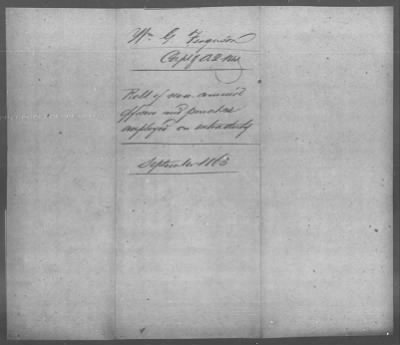 Wm G. Ferguson
Capt & A.Q.M.
Roll of non commis
officers and privates
employed on extra duty
September 1863